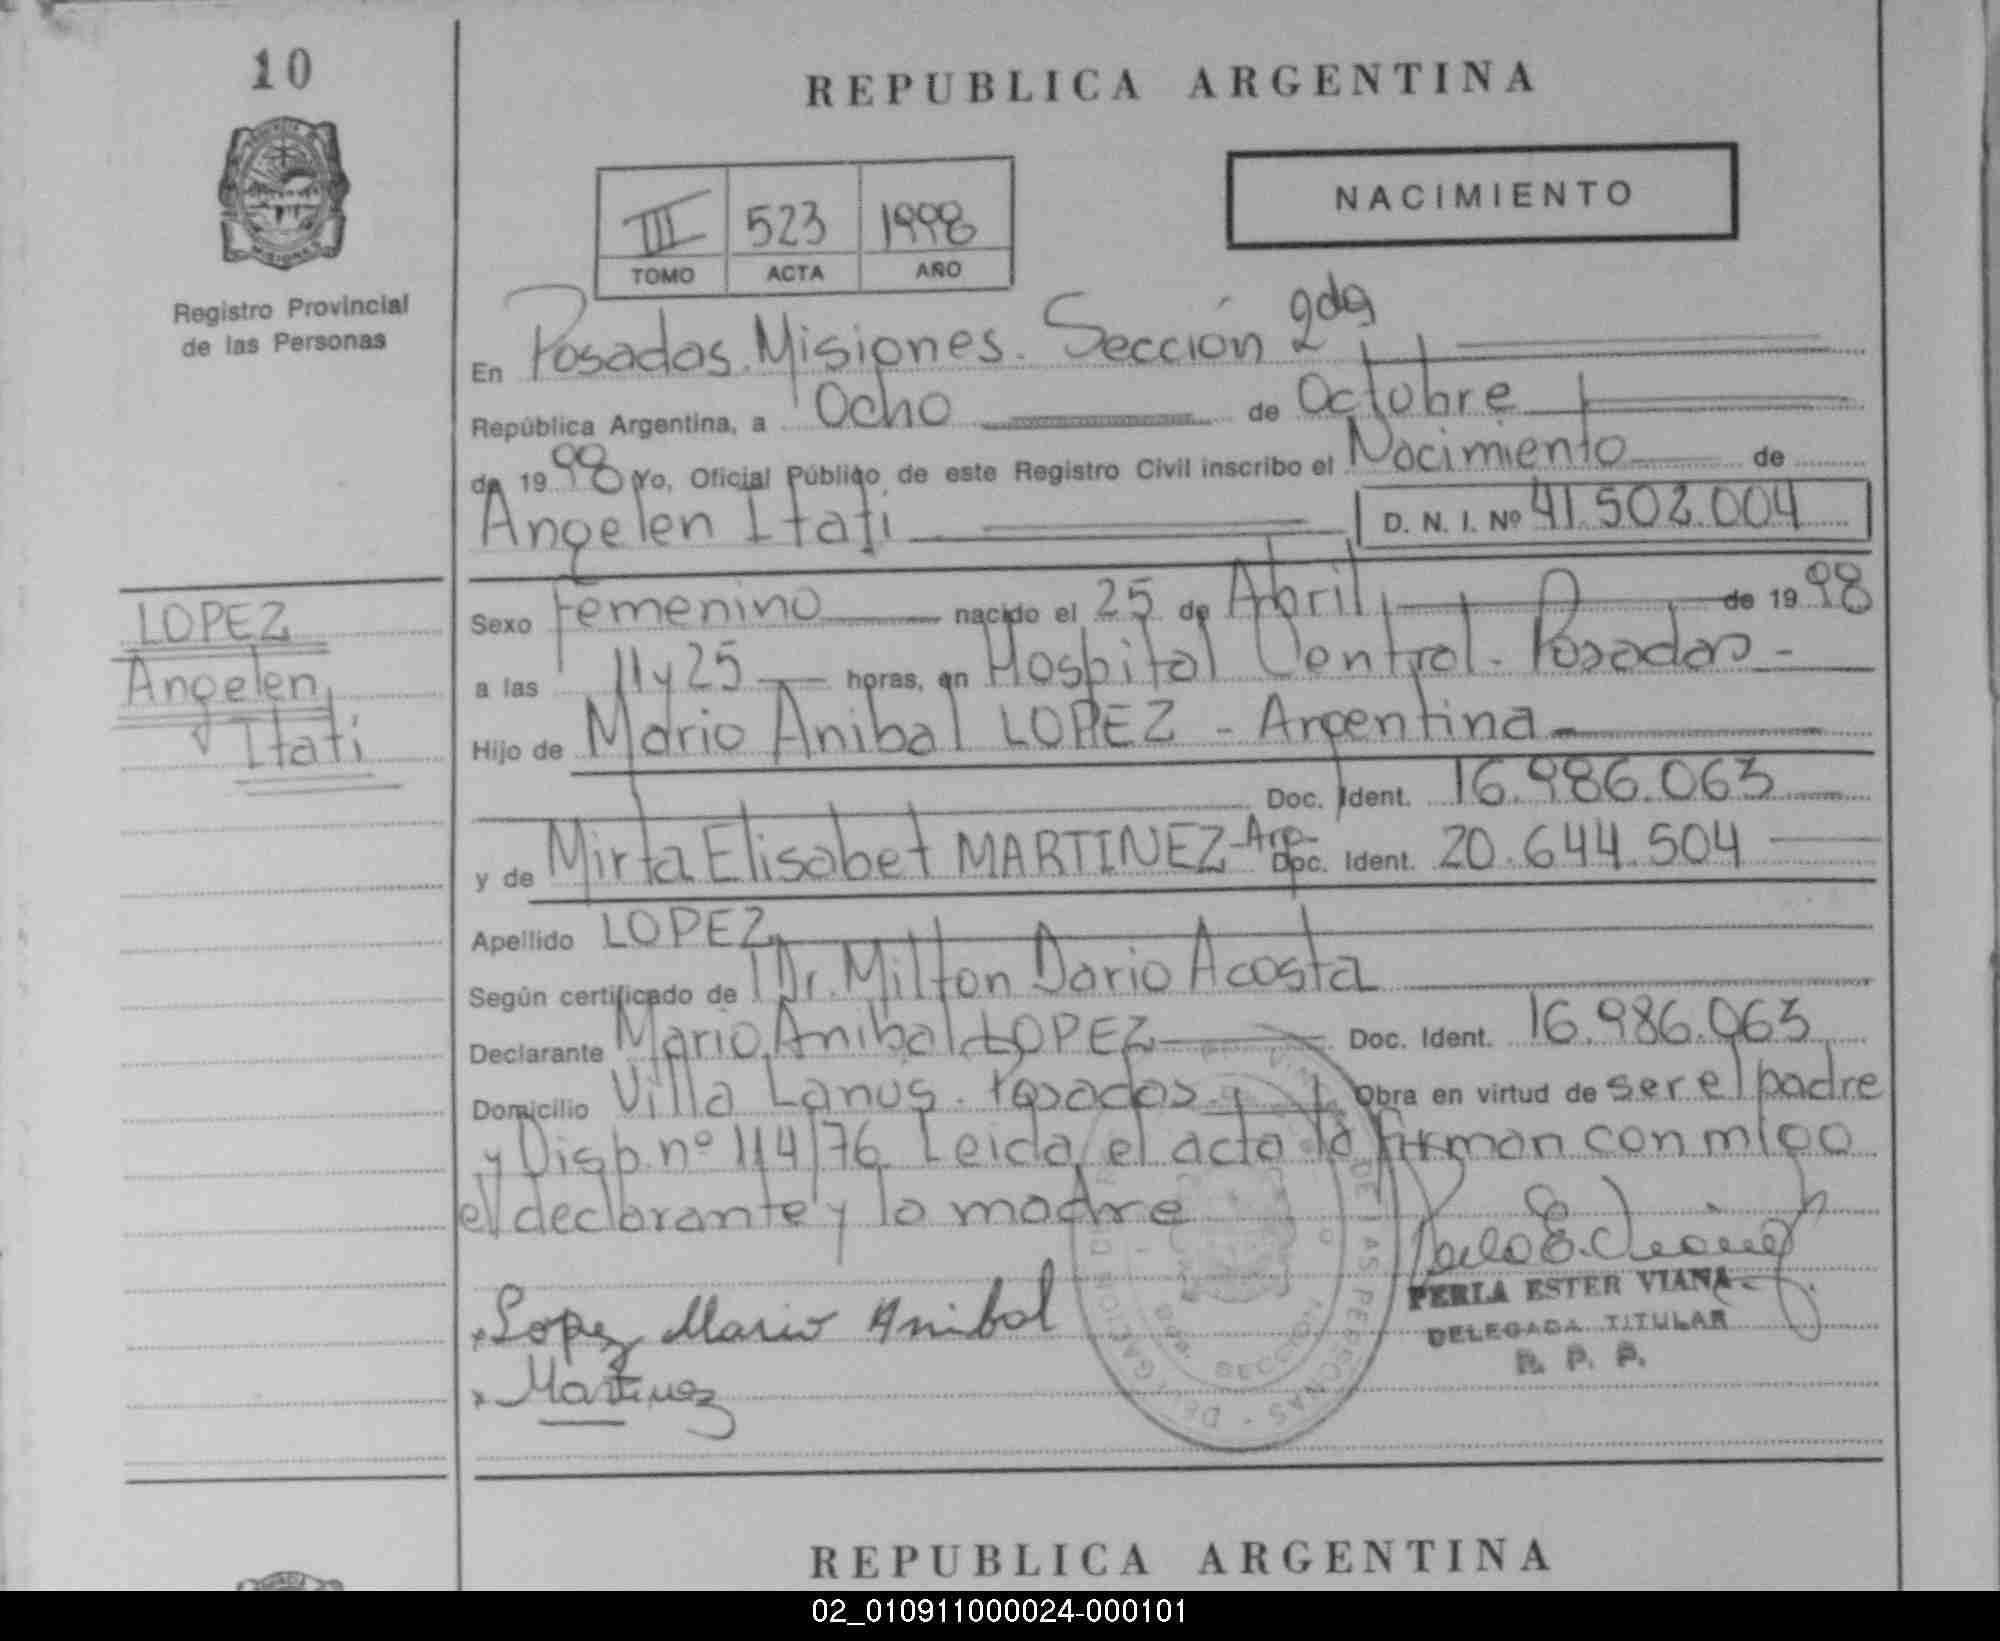 10
REPUBLICA ARGENTINA
NACIMIENTO
III 523 1998
TOMO ACTA AÑO
Registro Provincial
de las Personas
En Posadas. Misiones. Sección 2da
República Argentina, a Ocho de Octubre
de 1998 Yo, Oficial Público de este Registro Civil inscribo el Nacimiento de
Angelen Itatí D. N. I. Nº 41.502.004
LOPEZ
Angelen
Itati
Sexo Femenino nacido el 25 de Abril de 1998
a las 11 y 25 horas, en Hospital Central - Posadas -
Hijo de Mario Anibal LOPEZ - Argentina -
Doc. Ident. 16.986.063
y de Mirta Elisabet MARTINEZ - Arg- Doc. Ident. 20.644.504
Apellido LOPEZ
Según certificado de Dr. Milton Dario Acosta
Declarante Mario Anibal LOPEZ Doc. Ident. 16.986.063
Domicilio Villa Lanús. Posadas Obra en virtud de ser el padre
y Disp. nº 114/76. Leida el acta la firman conmigo
el declarante y la madre
Lopez Mario Anibal
Martinez
PERLA ESTER VIANA
DELEGADA TITULAR
R. P. P.
DE LAS PERSONAS - DELEGACION
SECCION
REPUBLICA ARGENTINA
02_010911000024-000101